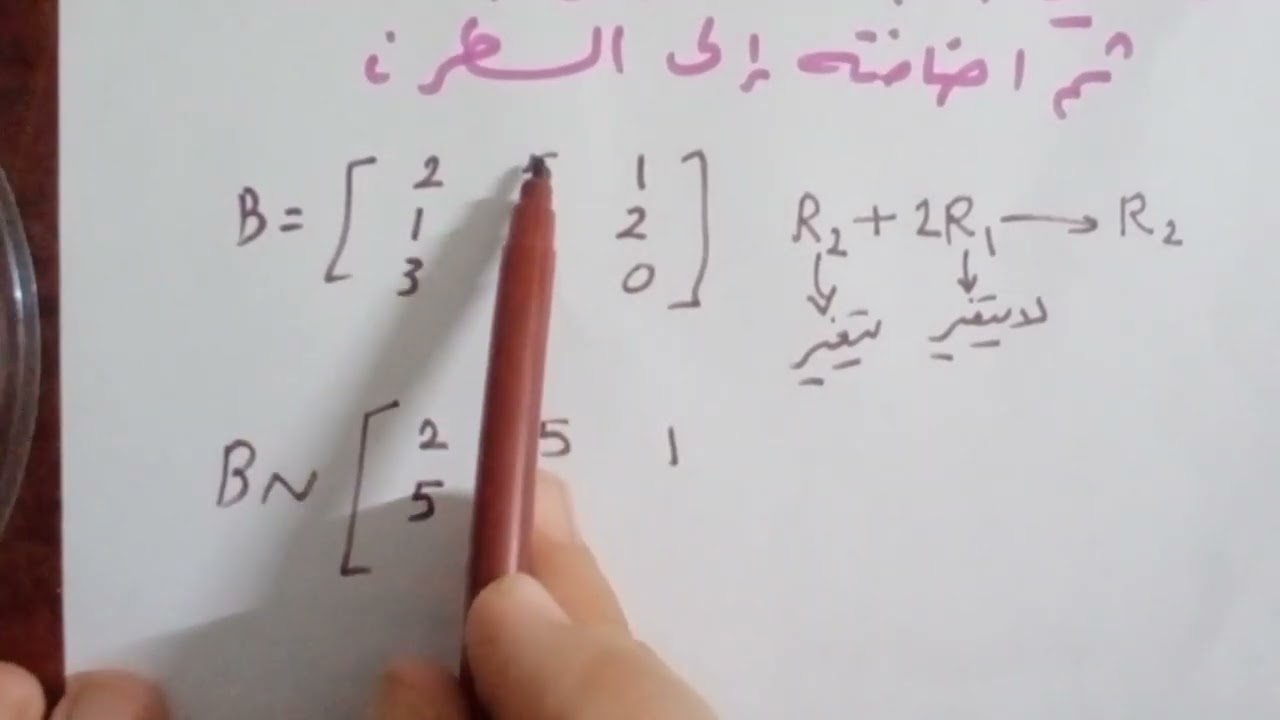 ثم اضافته إلى السطر i
B = [ 2 5 1
1 2
3 0 ] R₂ + 2R₁ → R₂
يتغير لا يتغير
B ~ [ 2 5 1
5